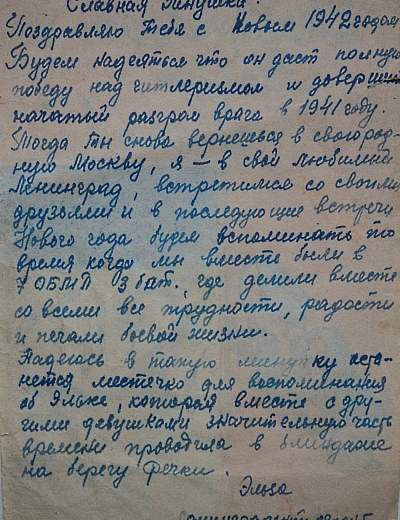 Славная Зинушка!
Поздравляю тебя с Новым 1942 годом
Будем надеяться что он даст полную
победу над гитлеризмом и довершит
начатый разгром врага в 1941 году.
Тогда ты снова вернешься в свою род-
ную Москву, я – в свой любимый
Ленинград, встретимся со своими
друзьями и в последующие встречи
Нового года будем вспоминать то
время когда мы вместе были в
7 ОБМП 3 бат., где делили вместе
со всеми все трудности, радости
и печали боевой жизни.
Надеюсь в такую минутку оста-
нется местечко для воспоминания
об Эльзе, которая вместе с дру-
гими девушками значительную часть
времени проводила в блиндаже
на берегу речки.
Эльза